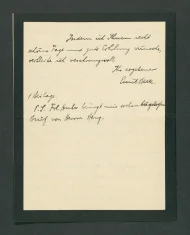 Indem ich Ihnen recht
schöne Tage und gute Erholung wünsche,
verbleibe ich hochachtungsvoll
Ihr ergebener
1 Beilage.
P.S. Frl. bringt mir schon
Brief von Herrn